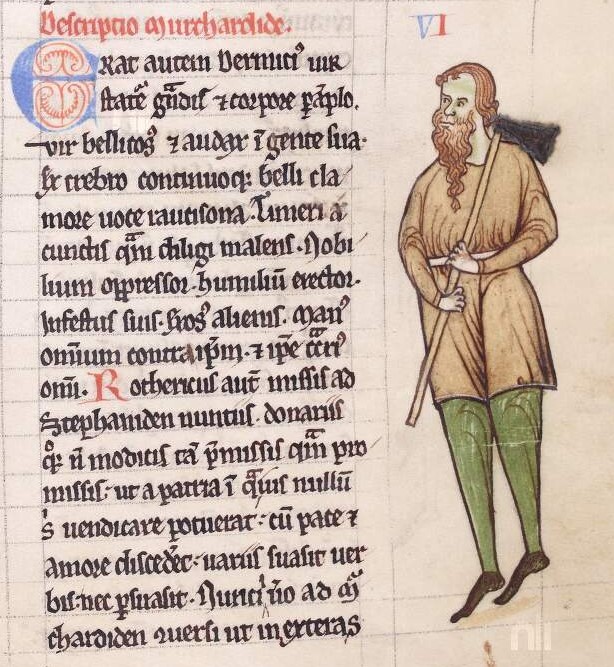 Descriptio Murchardide. VI
Erat autem Dermici᷒ uir
statᷓe gͣndis ⁊ corpore ꝑāplo.
vir bellicos᷒ ⁊ audax ī gente sua.
Ex crebro continuoq; belli cla
more uoce raucisona. Timeri a
cunctis qͣm diligi malens. Nobi
lium oppressor. humiliū erector.
Infestus suis. Exos᷒ alienis. Man᷒
omnium contra ip̄m. ⁊ ip̄e ꝯͣri᷒
omī. Rothericus aut̄ missis ad
Stephaniden nuntiis. donariis
q; n̄ modicis tā p̄missis qͣm pro
missis; ut a patria ī qͣ ius nullū
s uendicare potuerat; cū pace ⁊
amore disceder̄et; uariis suasit uer
bis; nec ꝑsuasit. Nuncii u̓o ad Mͬ
chardiden reuersi ut in exteras